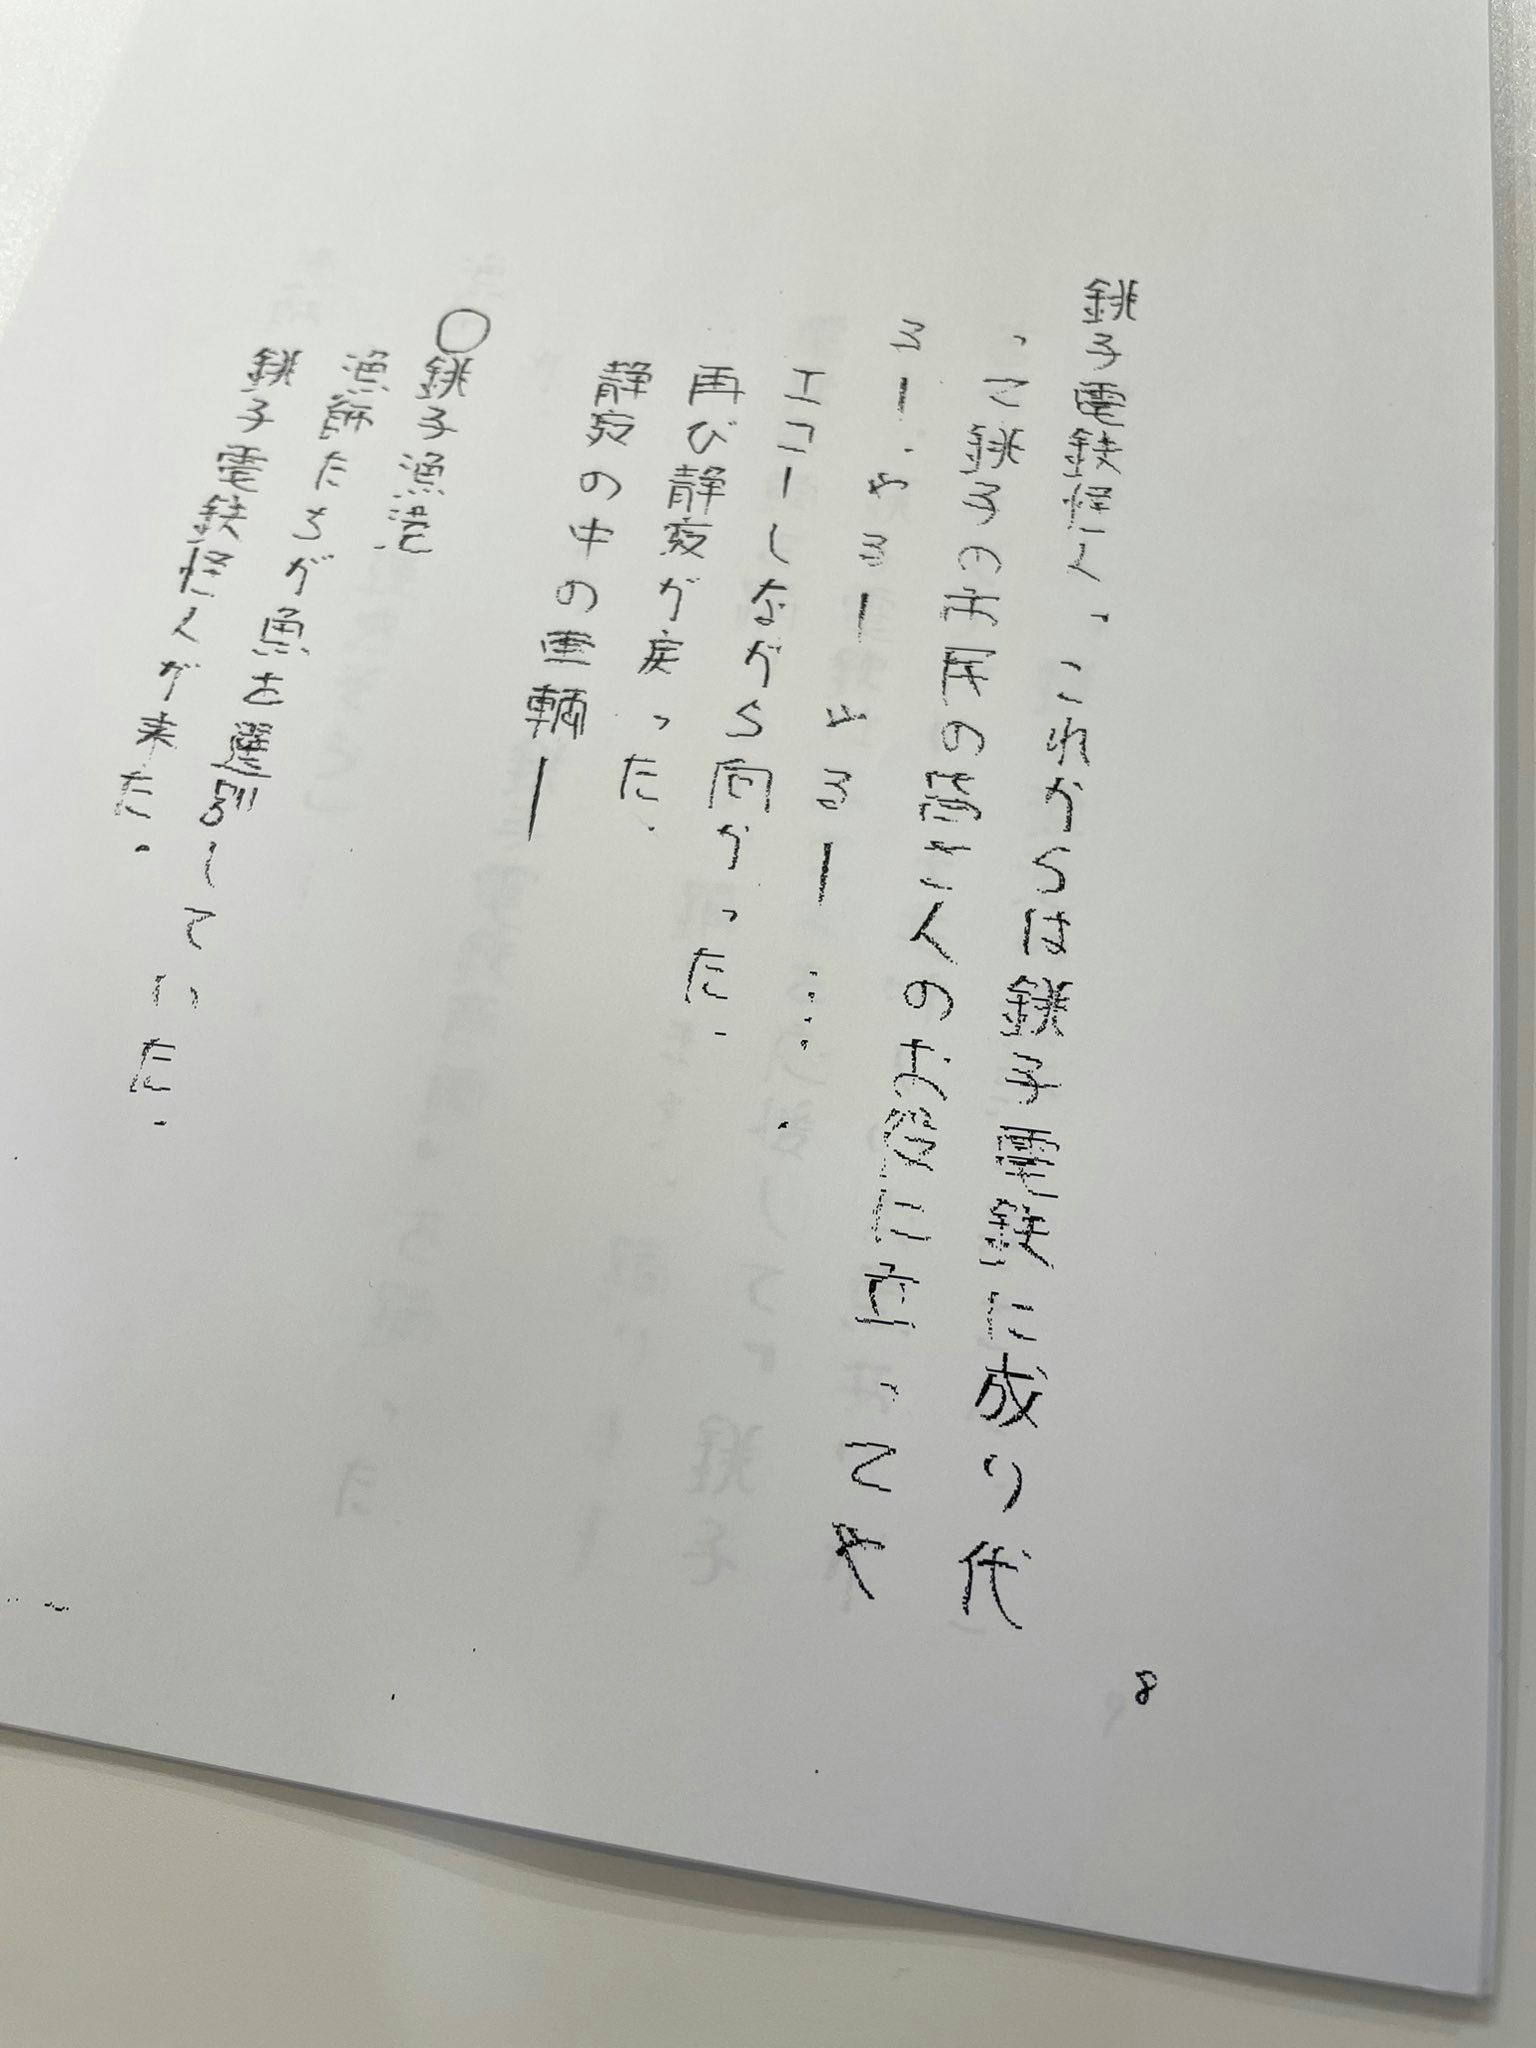 銚子電鉄怪人「これからは銚子電鉄に成り代
って銚子の市民の皆さんのお役に立ってや
るー.やるーやるー…
エコーしながら向かった.
再び静寂が戻った.
静寂の中の車輌ー
○銚子漁港
漁師たちが魚を選別していた.
銚子電鉄怪人が来た.
8